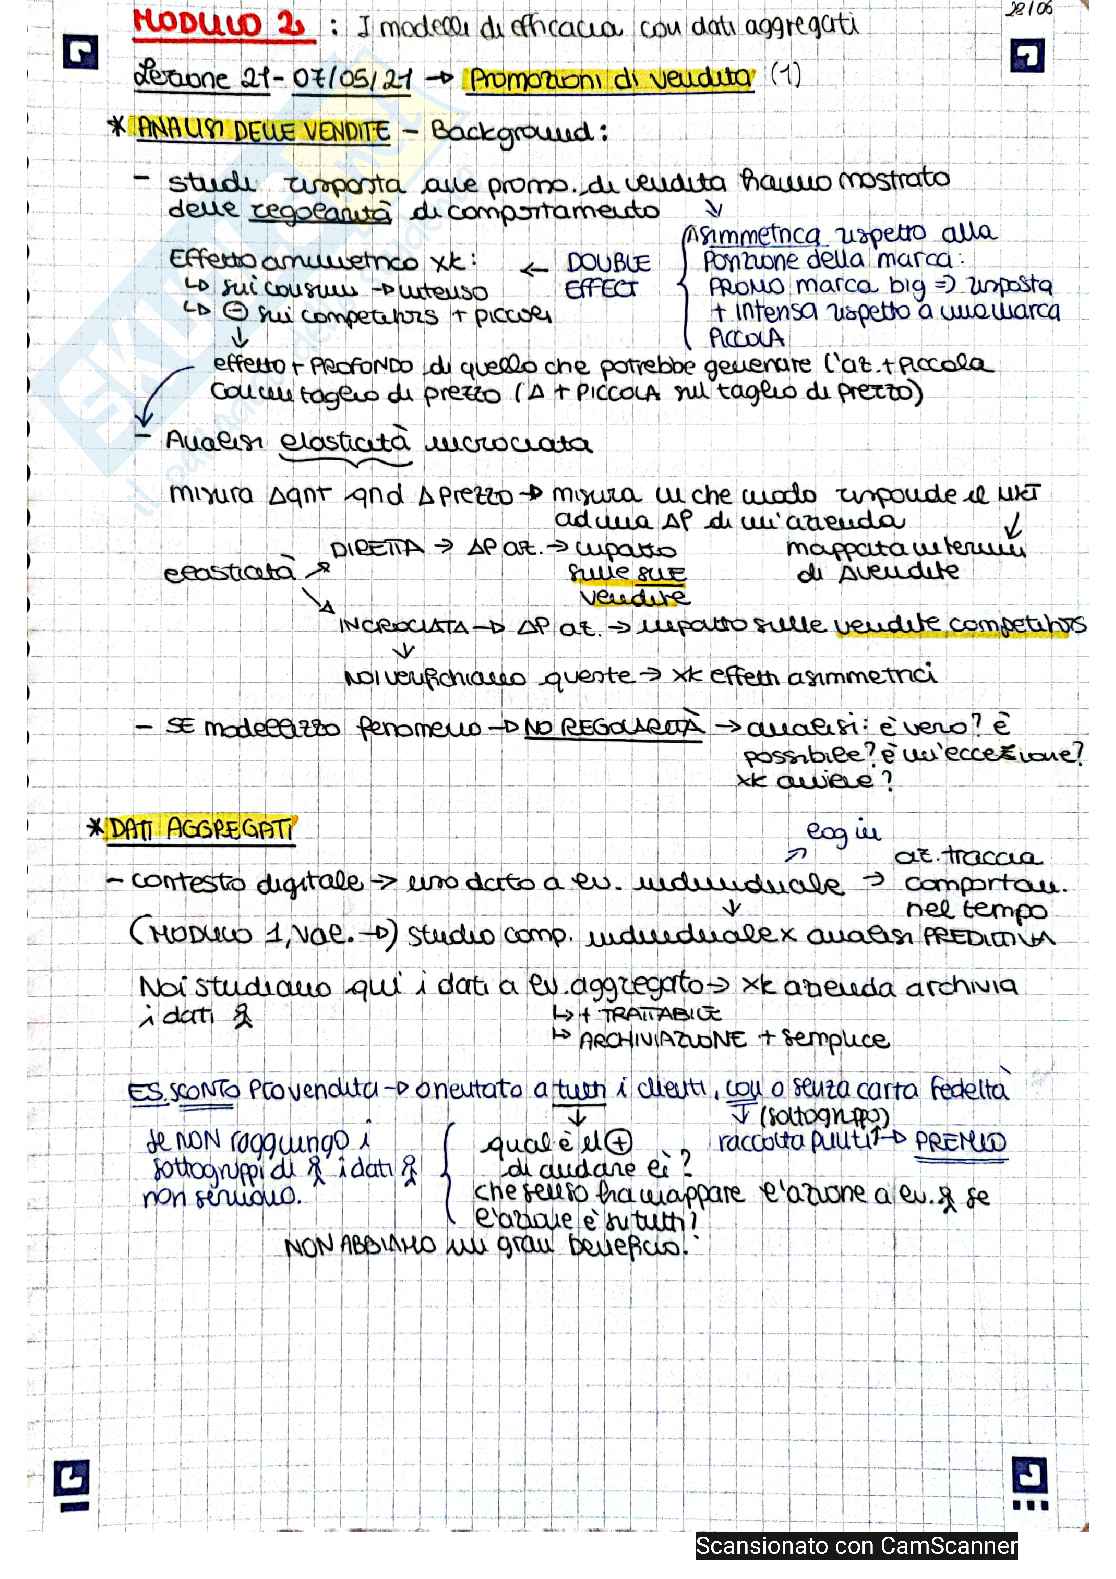 28/06
MODULO 2 : I modelli di efficacia con dati aggregati
Lezione 21 - 07/05/21 → Promozioni di vendita (1)
* ANALISI DELLE VENDITE - Background:
- studi risposta alle promo. di vendita hanno mostrato
delle regolarità di comportamento
Asimmetrica rispetto alla
posizione della marca:
PROMO marca big => risposta
+ intensa rispetto a una marca
PICCOLA
Effetto asimmetrico xk: ← DOUBLE EFFECT
↳ sui consumi → intenso
↳ ⊖ sui competitors + piccoli
effetto + PROFONDO di quello che potrebbe generare l'az. + piccola
con un taglio di prezzo (Δ + PICCOLA sul taglio di prezzo)
- Analisi elasticità incrociata
misura Δqnt qnd Δprezzo → misura in che modo risponde il MKT
ad una ΔP di un'azienda
mappata in termini
di Δvendite
elasticità
DIRETTA → ΔP az. → impatto
sulle SUE
vendite
INCROCIATA → ΔP az. → impatto sulle vendite competitors
NOI verifichiamo queste → xk effetti asimmetrici
- SE modellizzo fenomeno → NO REGOLARITÀ → analisi: è vero? è
possibile? è un'eccezione?
xk avviene?
* DATI AGGREGATI
log in
- contesto digitale → uso dato a ev. individuale → az. traccia
comportam.
nel tempo
(MODULO 1, Val. →) studio comp. individuale x analisi PREDITTIVA
Noi studiamo qui i dati a ev. aggregato → xk azienda archivia
i dati
↳ + TRATTABILE
↳ ARCHIVIAZIONE + semplice
ES. SCONTO Provendita → orientato a tutti i clienti, con o senza carta fedeltà
(sottogruppo)
raccolta punti → PREMIO
se NON raggiungo i
sottogruppi di i dati
non servono.
qual è il ⊕
di andare lì?
che senso ha mappare l'azione a ev. se
l'azione è su tutti?
NON ABBIAMO un gran beneficio.
Scansionato con CamScanner